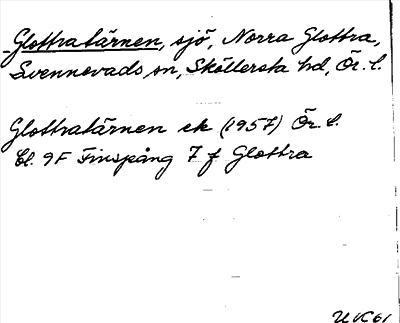 Glottratärnen, sjö, Norra Glottra,
Svennevads sn, Sköllersta hd, Ör. l.
Glottratärnen ek (1957) Ör. l.
bl. 9F Finspång 7 f Glottra